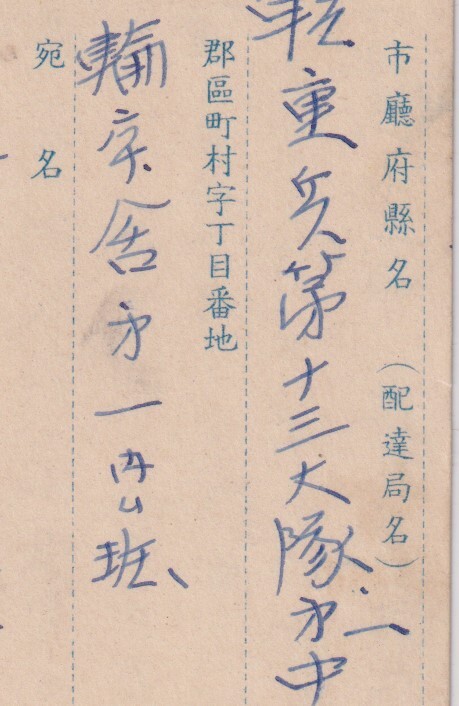 市廳府縣名（配達局名）
重兵第十三大隊才一中
郡區町村字丁目番地
輸卒舎才一内ム班、
宛名